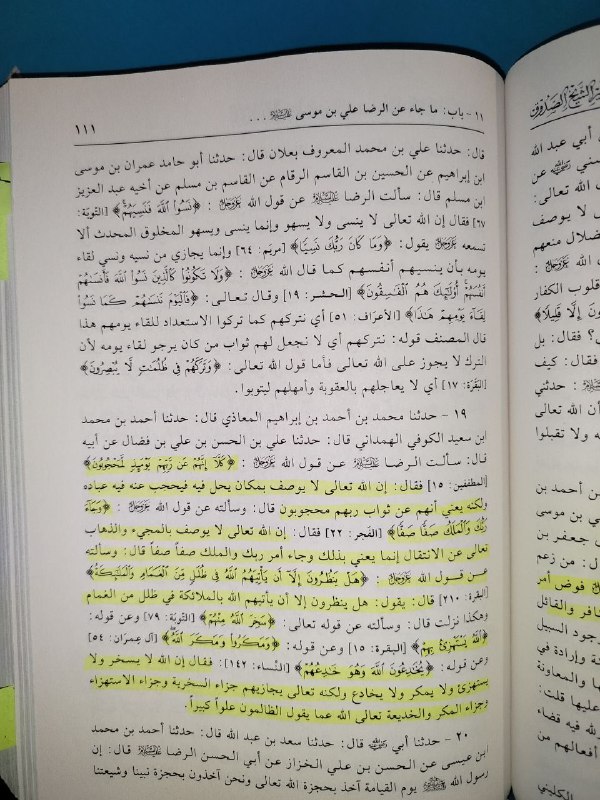 ١١ - باب: ما جاء عن الرضا علي بن موسى ﵇ ...
١١١
قال: حدثنا علي بن محمد المعروف بعلان قال: حدثنا أبو حامد عمران بن موسى
ابن إبراهيم عن الحسين بن القاسم الرقام عن القاسم بن مسلم عن أخيه عبد العزيز
ابن مسلم قال: سألت الرضا ﵇ عن قول الله عز وجل: ﴿نَسُوا اللَّهَ فَنَسِيَهُمْ﴾ [التّوبَة:
٦٧] فقال إن الله تعالى لا ينسى ولا يسهو وإنما ينسى ويسهو المخلوق المحدث ألا
تسمعه عز وجل يقول: ﴿وَمَا كَانَ رَبُّكَ نَسِيًّا﴾ [مريَم: ٦٤] وإنما يجازي من نسيه ونسي لقاء
يومه بأن ينسيهم أنفسهم كما قال الله عز وجل: ﴿وَلَا تَكُونُوا كَالَّذِينَ نَسُوا اللَّهَ فَأَنسَاهُمْ
أَنفُسَهُمْ أُولَٰئِكَ هُمُ الْفَاسِقُونَ﴾ [الحشر: ١٩] وقال تعالى: ﴿فَالْيَوْمَ نَنسَاهُمْ كَمَا نَسُوا
لِقَاءَ يَوْمِهِمْ هَٰذَا﴾ [الأعرَاف: ٥١] أي نتركهم كما تركوا الاستعداد للقاء يومهم هذا
قال المصنف قوله: نتركهم أي لا نجعل لهم ثواب من كان يرجو لقاء يومه لأن
الترك لا يجوز على الله تعالى فأما قول الله تعالى: ﴿وَتَرَكَهُمْ فِي ظُلُمَاتٍ لَّا يُبْصِرُونَ﴾
[البَقَرَة: ١٧] أي لا يعاجلهم بالعقوبة وأمهلهم ليتوبوا.
١٩ - حدثنا محمد بن أحمد بن إبراهيم المعاذي قال: حدثنا أحمد بن محمد
ابن سعيد الكوفي الهمداني قال: حدثنا علي بن الحسن بن علي بن فضال عن أبيه
قال: سألت الرضا ﵇ عن قول الله عز وجل: ﴿كَلَّا إِنَّهُمْ عَن رَّبِّهِمْ يَوْمَئِذٍ لَّمَحْجُوبُونَ﴾
[المطفّفِين: ١٥] فقال: إن الله تعالى لا يوصف بمكان يحل فيه فيحجب عنه فيه عباده
ولكنه يعني أنهم عن ثواب ربهم محجوبون قال: وسألته عن قول الله عز وجل: ﴿وَجَاءَ
رَبُّكَ وَالْمَلَكُ صَفًّا صَفًّا﴾ [الفَجر: ٢٢] فقال: إن الله تعالى لا يوصف بالمجيء والذهاب
تعالى عن الانتقال إنما يعني بذلك وجاء أمر ربك والملك صفاً صفاً قال: وسألته
عن قول الله عز وجل: ﴿هَلْ يَنظُرُونَ إِلَّا أَن يَأْتِيَهُمُ اللَّهُ فِي ظُلَلٍ مِّنَ الْغَمَامِ وَالْمَلَائِكَةُ﴾
[البقرة: ٢١٠] قال: يقول: هل ينظرون إلا أن يأتيهم الله بالملائكة في ظلل من الغمام
وهكذا نزلت قال: وسألته عن قوله تعالى: ﴿سَخِرَ اللَّهُ مِنْهُمْ﴾ [التّوبَة: ٧٩] وعن قوله:
﴿اللَّهُ يَسْتَهْزِئُ بِهِمْ﴾ [البقرة: ١٥] وعن قوله: ﴿وَمَكَرُوا وَمَكَرَ اللَّهُ﴾ [آل عِمرَان: ٥٤]
وعن قوله: ﴿يُخَادِعُونَ اللَّهَ وَهُوَ خَادِعُهُمْ﴾ [النِّساء: ١٤٢]: فقال إن الله لا يسخر ولا
يستهزئ ولا يمكر ولا يخادع ولكنه تعالى يجازيهم جزاء السخرية وجزاء الاستهزاء
وجزاء المكر والخديعة تعالى الله عما يقول الظالمون علواً كبيراً.
٢٠ - حدثنا أبي رضي الله عنه قال: حدثنا سعد بن عبد الله قال: حدثنا أحمد بن محمد
ابن عيسى عن الحسن بن علي الخزاز عن أبي الحسن الرضا ﵇ قال: إن
رسول الله ﷺ يوم القيامة آخذ بحجزة الله تعالى ونحن آخذون بحجزة نبينا وشيعتنا